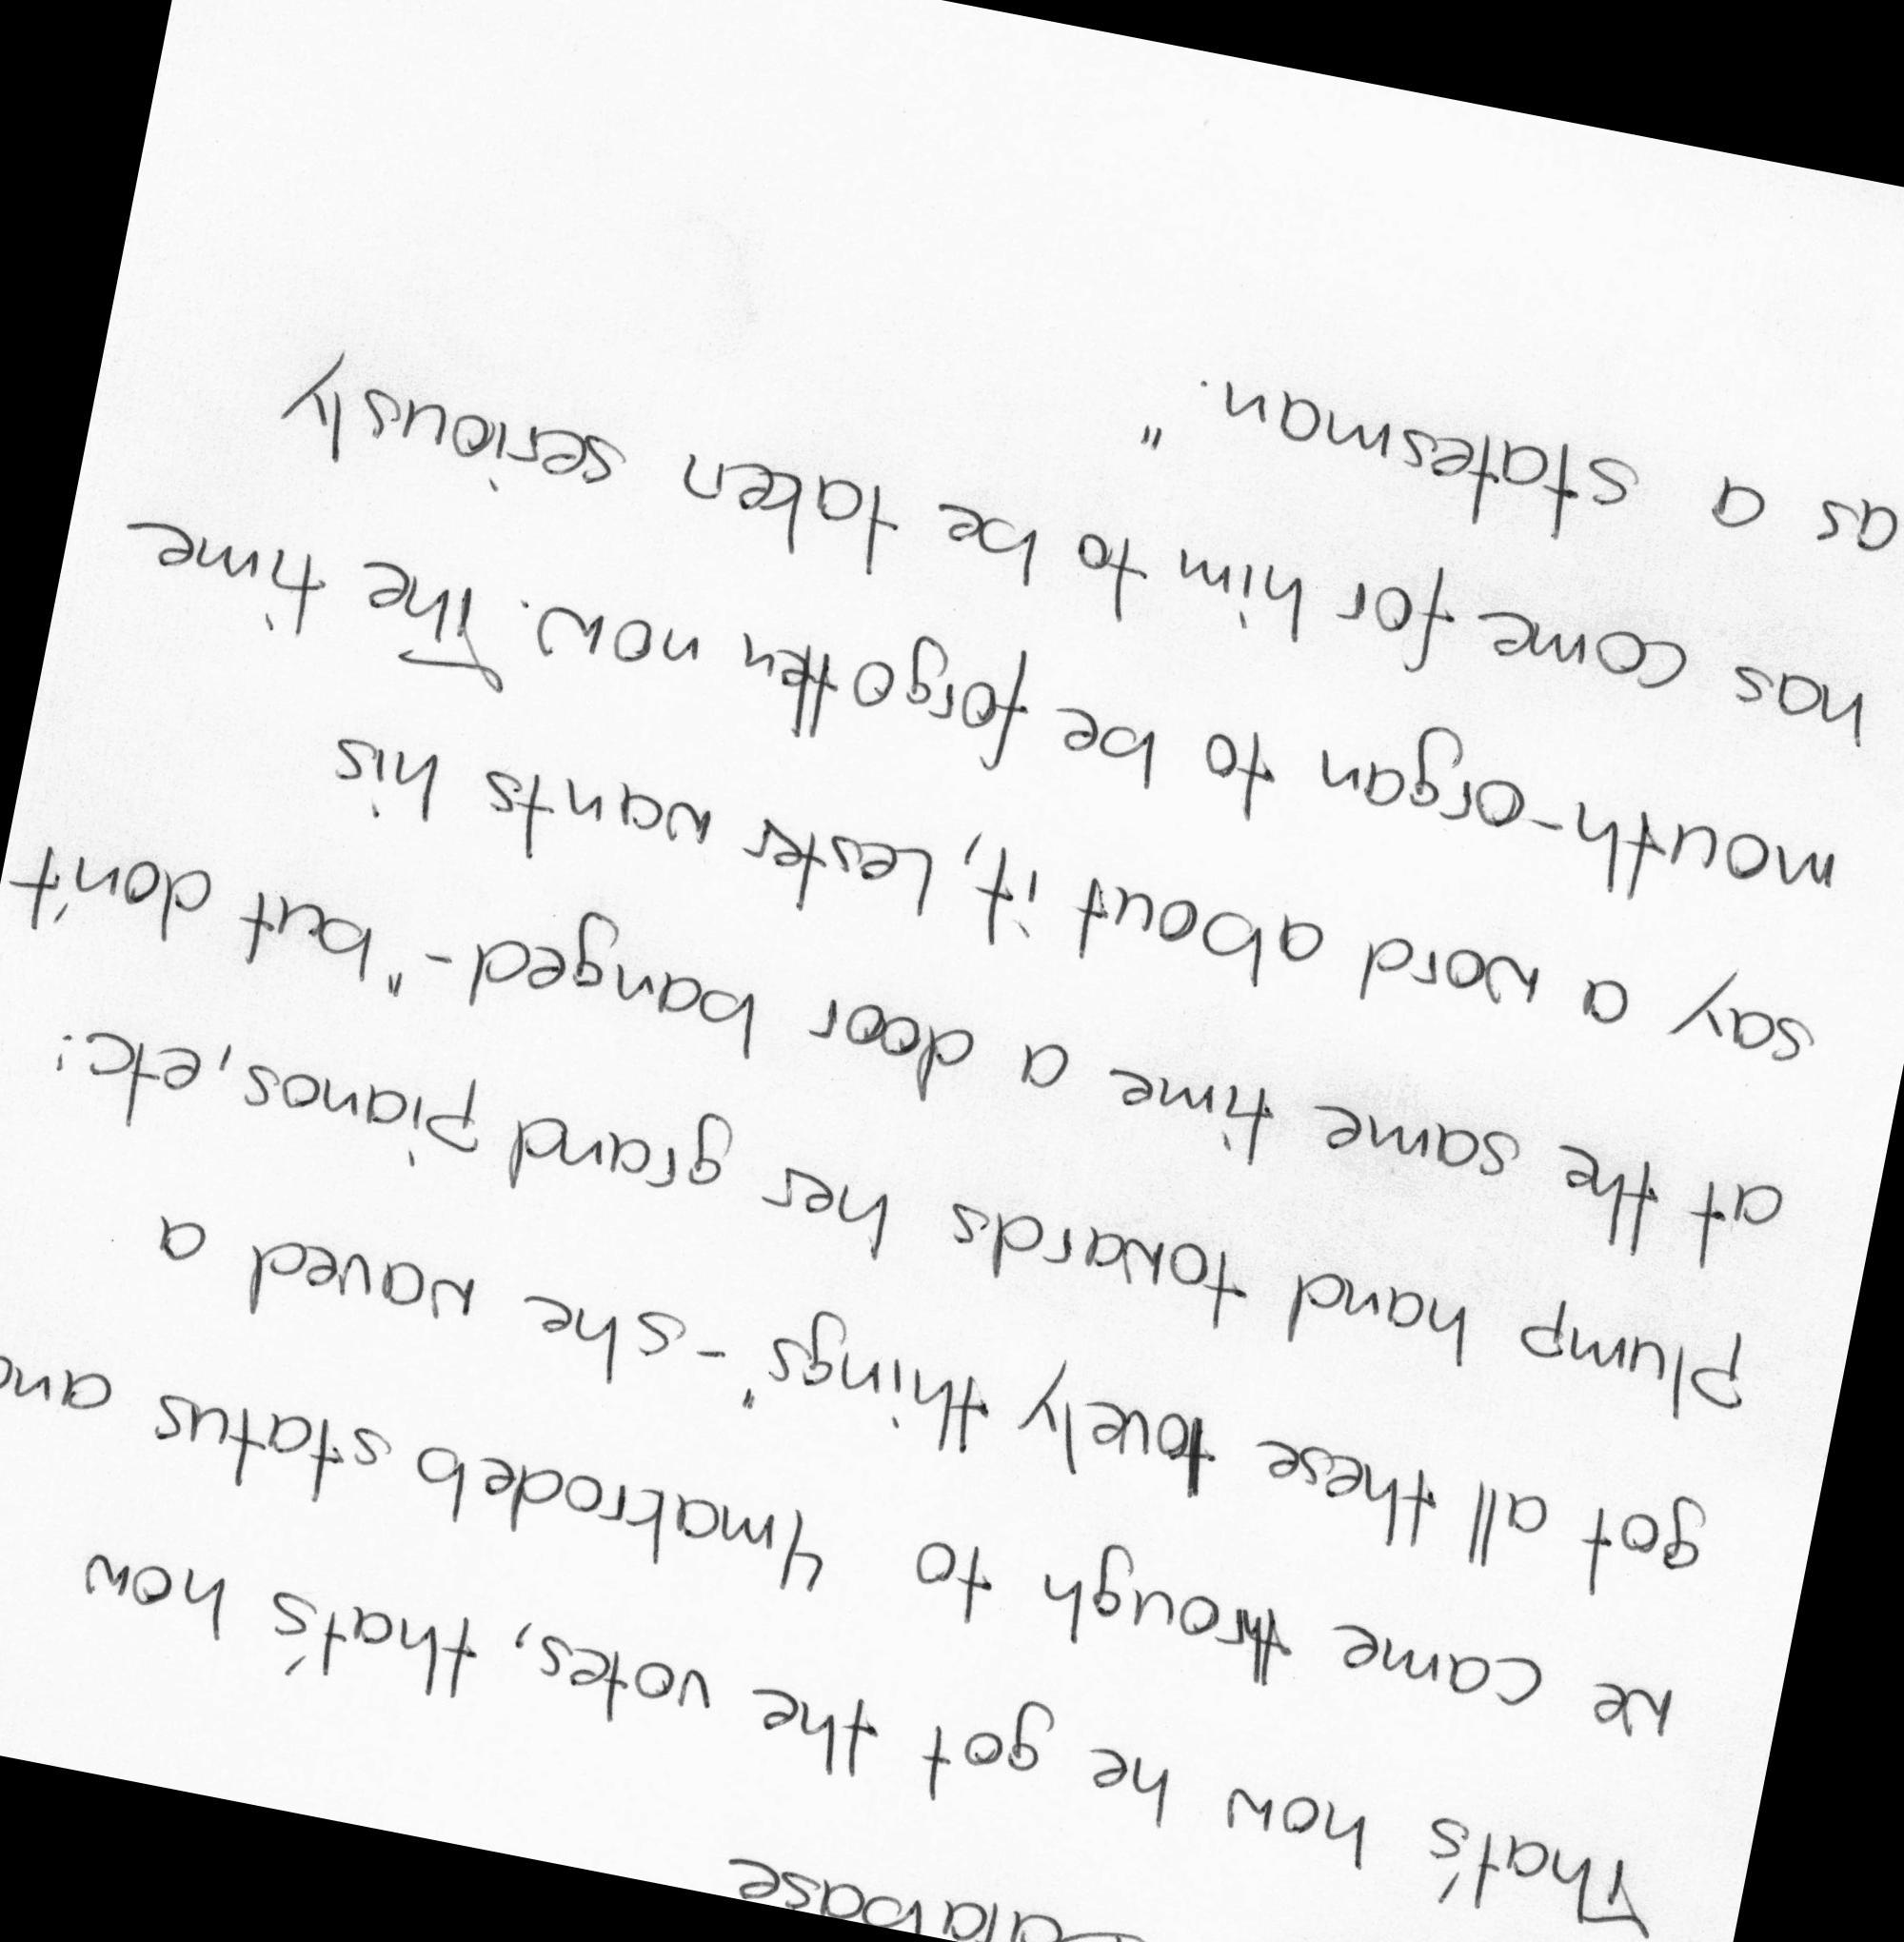 Database
That's how he got the votes, that's how
we came through to 4makrodeb status and
got all these lovely things" - she waved a
plump hand towards her grand pianos, etc:
at the same time a door banged - "but don't
say a word about it, Lester wants his
mouth-organ to be forgotten now. The time
has come for him to be taken seriously
as a statesman."